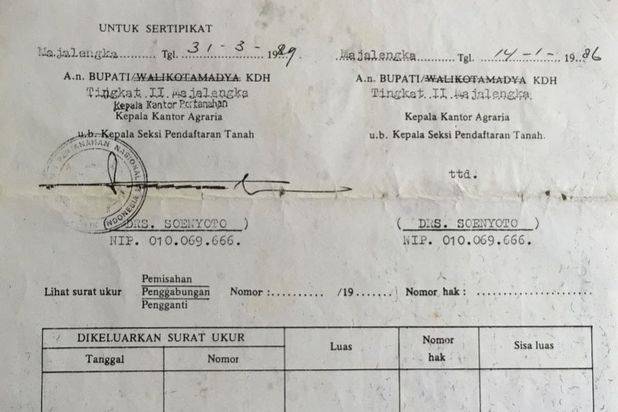 UNTUK SERTIPIKAT
Majalengka Tgl. 31-3-1989
A.n. BUPATI/WALIKOTAMADYA KDH
Tingkat II Majalengka
Kepala Kantor Pertanahan
Kepala Kantor Agraria
u.b. Kepala Seksi Pendaftaran Tanah
PERTANAHAN NASIONAL
INDONESIA
(DRS. SOENYOTO)
NIP. 010.069.666.
Majalengka Tgl. 14-1-1986
A.n. BUPATI/WALIKOTAMADYA KDH
Tingkat II Majalengka
Kepala Kantor Agraria
u.b. Kepala Seksi Pendaftaran Tanah.
ttd.
( DRS. SOENYOTO )
NIP. 010.069.666.
Lihat surat ukur Pemisahan Penggabungan Pengganti Nomor :.......... /19....... / Nomor hak : ....................
DIKELUARKAN SURAT UKUR
Tanggal Nomor Luas Nomor hak Sisa luas